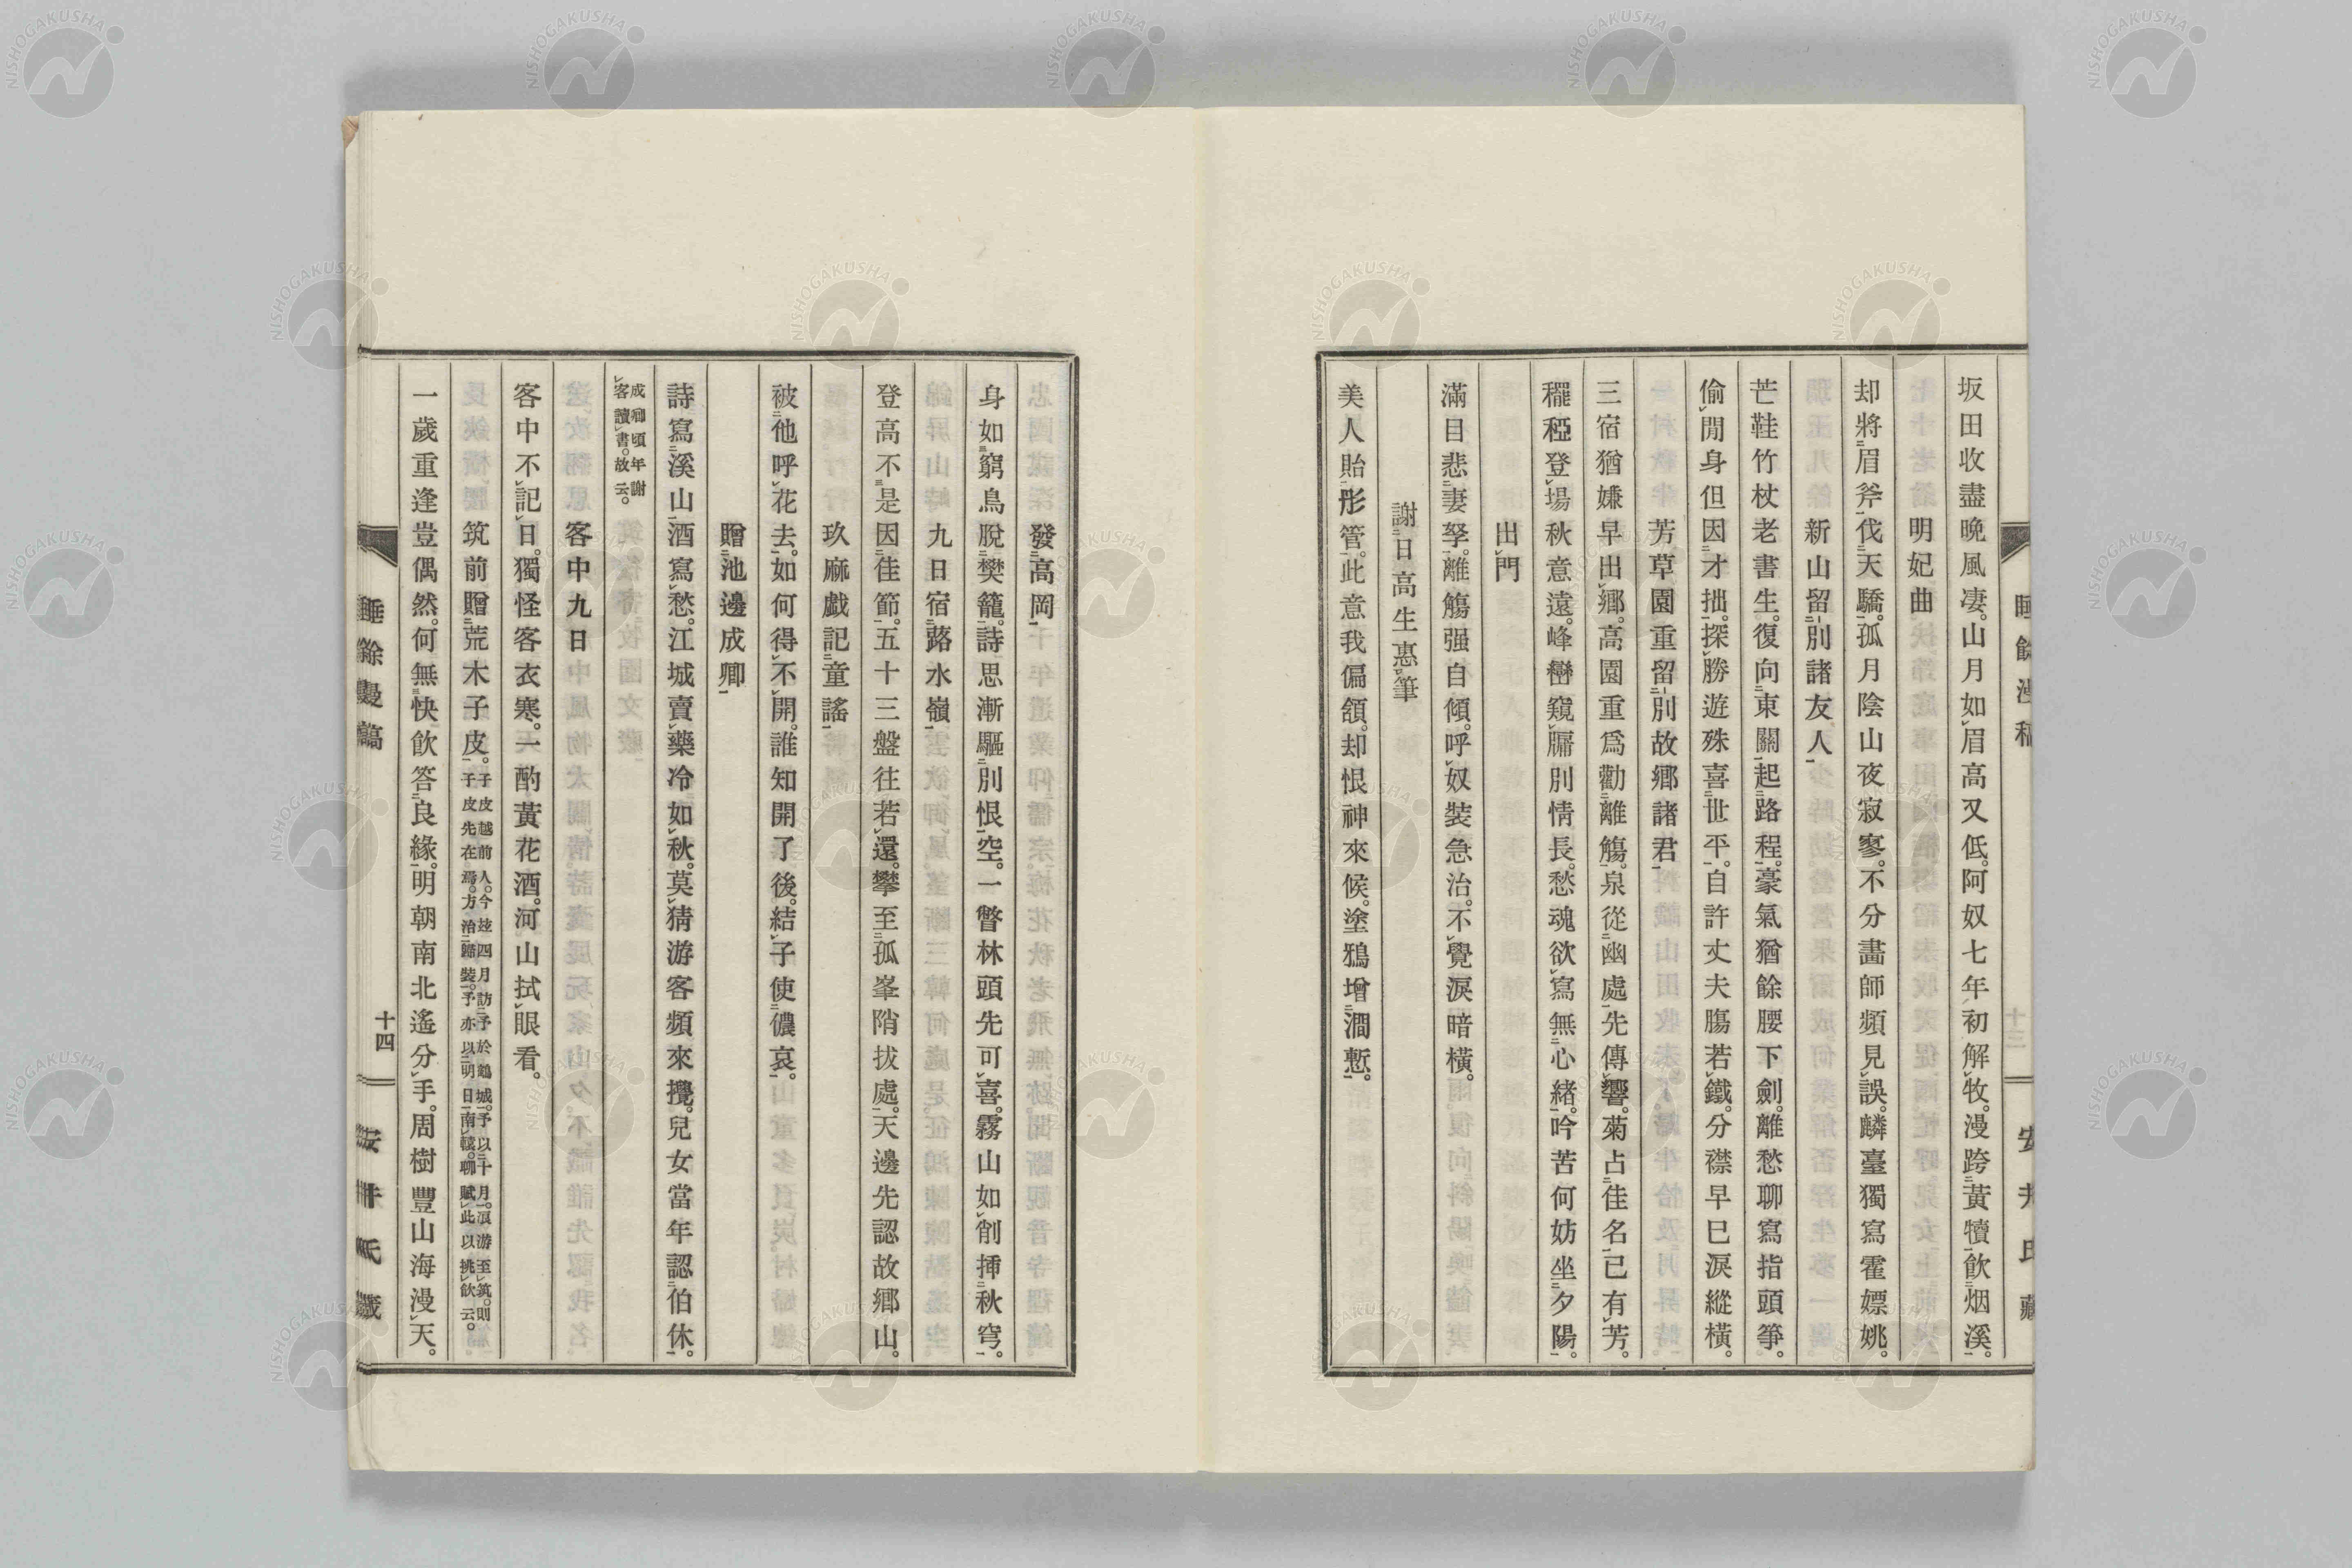 睡餘漫稿
安井氏藏
坂田收盡晚風凄。山月如眉高又低。阿奴七年初解牧。漫跨黃犢飲烟溪。
明妃曲
却將眉斧伐天驕。孤月陰山夜寂寥。不分畫師頻見誤。麟臺獨寫霍嫖姚。
新山留別諸友人
芒鞋竹杖老書生。復向東關起路程。豪氣猶餘腰下劍。離愁聊寫指頭箏。
偷閒身但因才拙。探勝遊殊喜世平。自許丈夫膓若鐵。分襟早巳淚縱橫。
芳草園重留別故鄉諸君
三宿猶嫌早出鄉。高園重爲勸離觴。泉從幽處先傳響。菊占佳名已有芳。
䆉稏登場秋意遠。峰巒窺牖別情長。愁魂欲寫無心緒。吟苦何妨坐夕陽。
出門
滿目悲妻孥。離觴强自傾。呼奴裝急治。不覺淚暗橫。
謝日高生惠筆
美人貽彤管。此意我偏頷。却恨神來候。塗鴉增澗慙。
發高岡
身如窮鳥脫樊籠。詩思漸驅別恨空。一瞥林頭先可喜。霧山如削揷秋穹。
九日宿蕗水嶺
登高不是因佳節。五十三盤往若還。攀至孤峯陗拔處。天邊先認故鄉山。
玖麻戲記童謠
被他呼花去。如何得不開。誰知開了後。結子使儂哀。
贈池邊成卿
詩寫溪山酒寫愁。江城賣藥冷如秋。莫猜游客頻來攪。兒女當年認伯休。
成卿頃年謝
客讀書。故云。
客中九日
客中不記日。獨怪客衣寒。一酌黃花酒。河山拭眼看。
筑前贈荒木子皮。
子皮越前人。今玆四月訪予於鶴城。予以十月。漬游至筑。則
子皮先在焉。方治歸裝。予亦以明日南轅。聊賦此以挑飲云。
一歲重逢豈偶然。何無快飲答良緣。明朝南北遙分手。周樹豐山海漫天。
睡餘漫稿
十四
安井氏藏